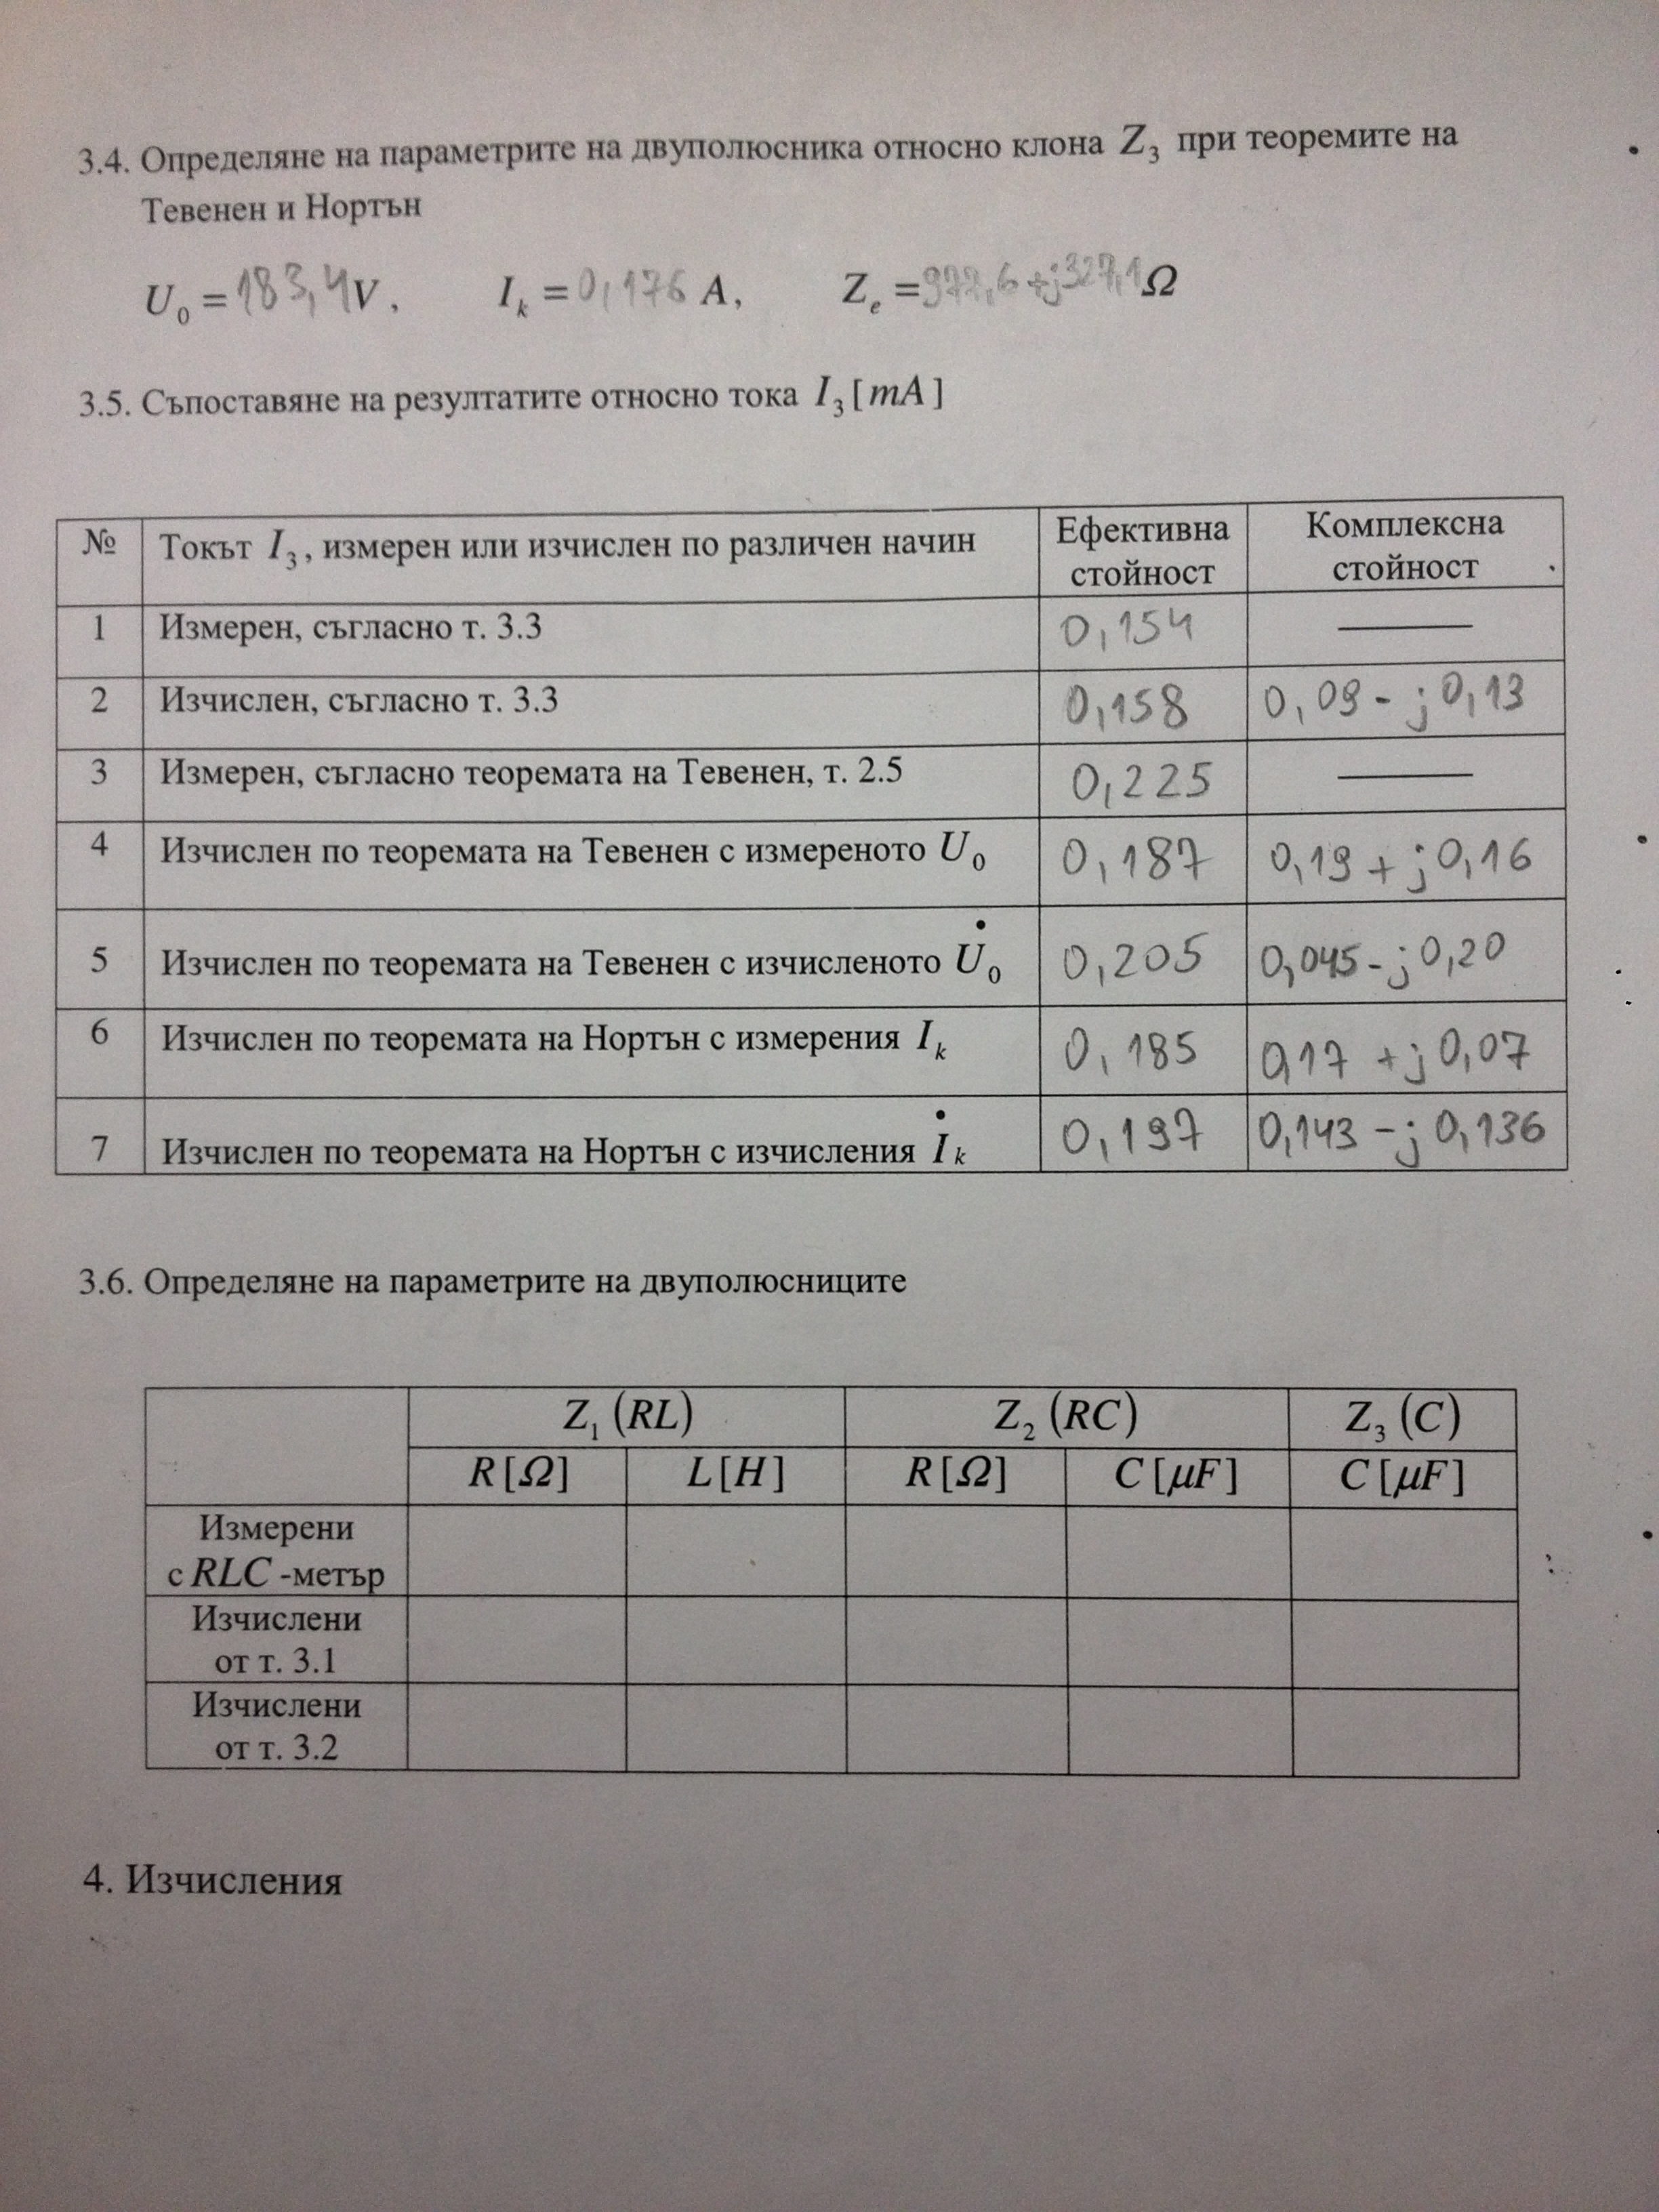 3.4. Определяне на параметрите на двуполюсника относно клона Z₃ при теоремите на
Тевенен и Нортън
U₀ = 183,4 V, I_k = 0,176 A, Z_e = 977,6 + j327,1 Ω
3.5. Съпоставяне на резултатите относно тока I₃ [mA]
№ Токът I₃, измерен или изчислен по различен начин Ефективна стойност Комплексна стойност
1 Измерен, съгласно т. 3.3 0,154 —
2 Изчислен, съгласно т. 3.3 0,158 0,09 - j0,13
3 Измерен, съгласно теоремата на Тевенен, т. 2.5 0,225 —
4 Изчислен по теоремата на Тевенен с измереното U₀ 0,187 0,19 + j0,16
5 Изчислен по теоремата на Тевенен с изчисленото U̇₀ 0,205 0,045 - j0,20
6 Изчислен по теоремата на Нортън с измерения I_k 0,185 0,17 + j0,07
7 Изчислен по теоремата на Нортън с изчисления İ_k 0,197 0,143 - j0,136
3.6. Определяне на параметрите на двуполюсниците
Z₁ (RL) Z₂ (RC) Z₃ (C)
R[Ω] L[H] R[Ω] C[μF] C[μF]
Измерени
с RLC -метър
Изчислени
от т. 3.1
Изчислени
от т. 3.2
4. Изчисления